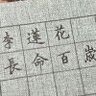 李蓮花
長命百歲